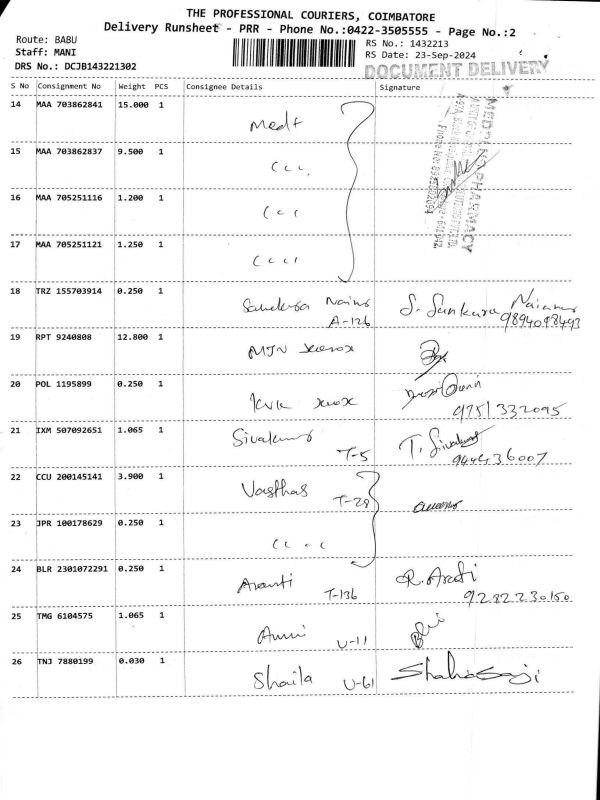 THE PROFESSIONAL COURIERS, COIMBATORE
Delivery Runsheet - PRR - Phone No.:0422-3505555 - Page No.:2
Route: BABU
RS No.: 1432213
Staff: MANI
RS Date: 23-Sep-2024
DRS No.: DCJB143221302
DOCUMENT DELIVERY
S No Consignment No Weight PCS Consignee Details Signature
14 MAA 703862841 15.000 1 Medt
MEDPLUS PHARMACY
15 MAA 703862837 9.500 1
16 MAA 705251116 1.200 1
17 MAA 705251121 1.250 1
18 TRZ 155703914 0.250 1 A-126 S. Sankara
9894098493
19 RPT 9240808 12.800 1 MJN xerox
20 POL 1195899 0.250 1 xerox
9751332095
21 IXM 507092651 1.065 1 Sivakumar T-5 T. Sivakumar
9444436007
22 CCU 200145141 3.900 1 Vasthas T-28
23 JPR 100178629 0.250 1
24 BLR 2301072291 0.250 1 T-136
9282230150
25 TMG 6104575 1.065 1 U-11
26 TNJ 7880199 0.030 1 Shaila U-61